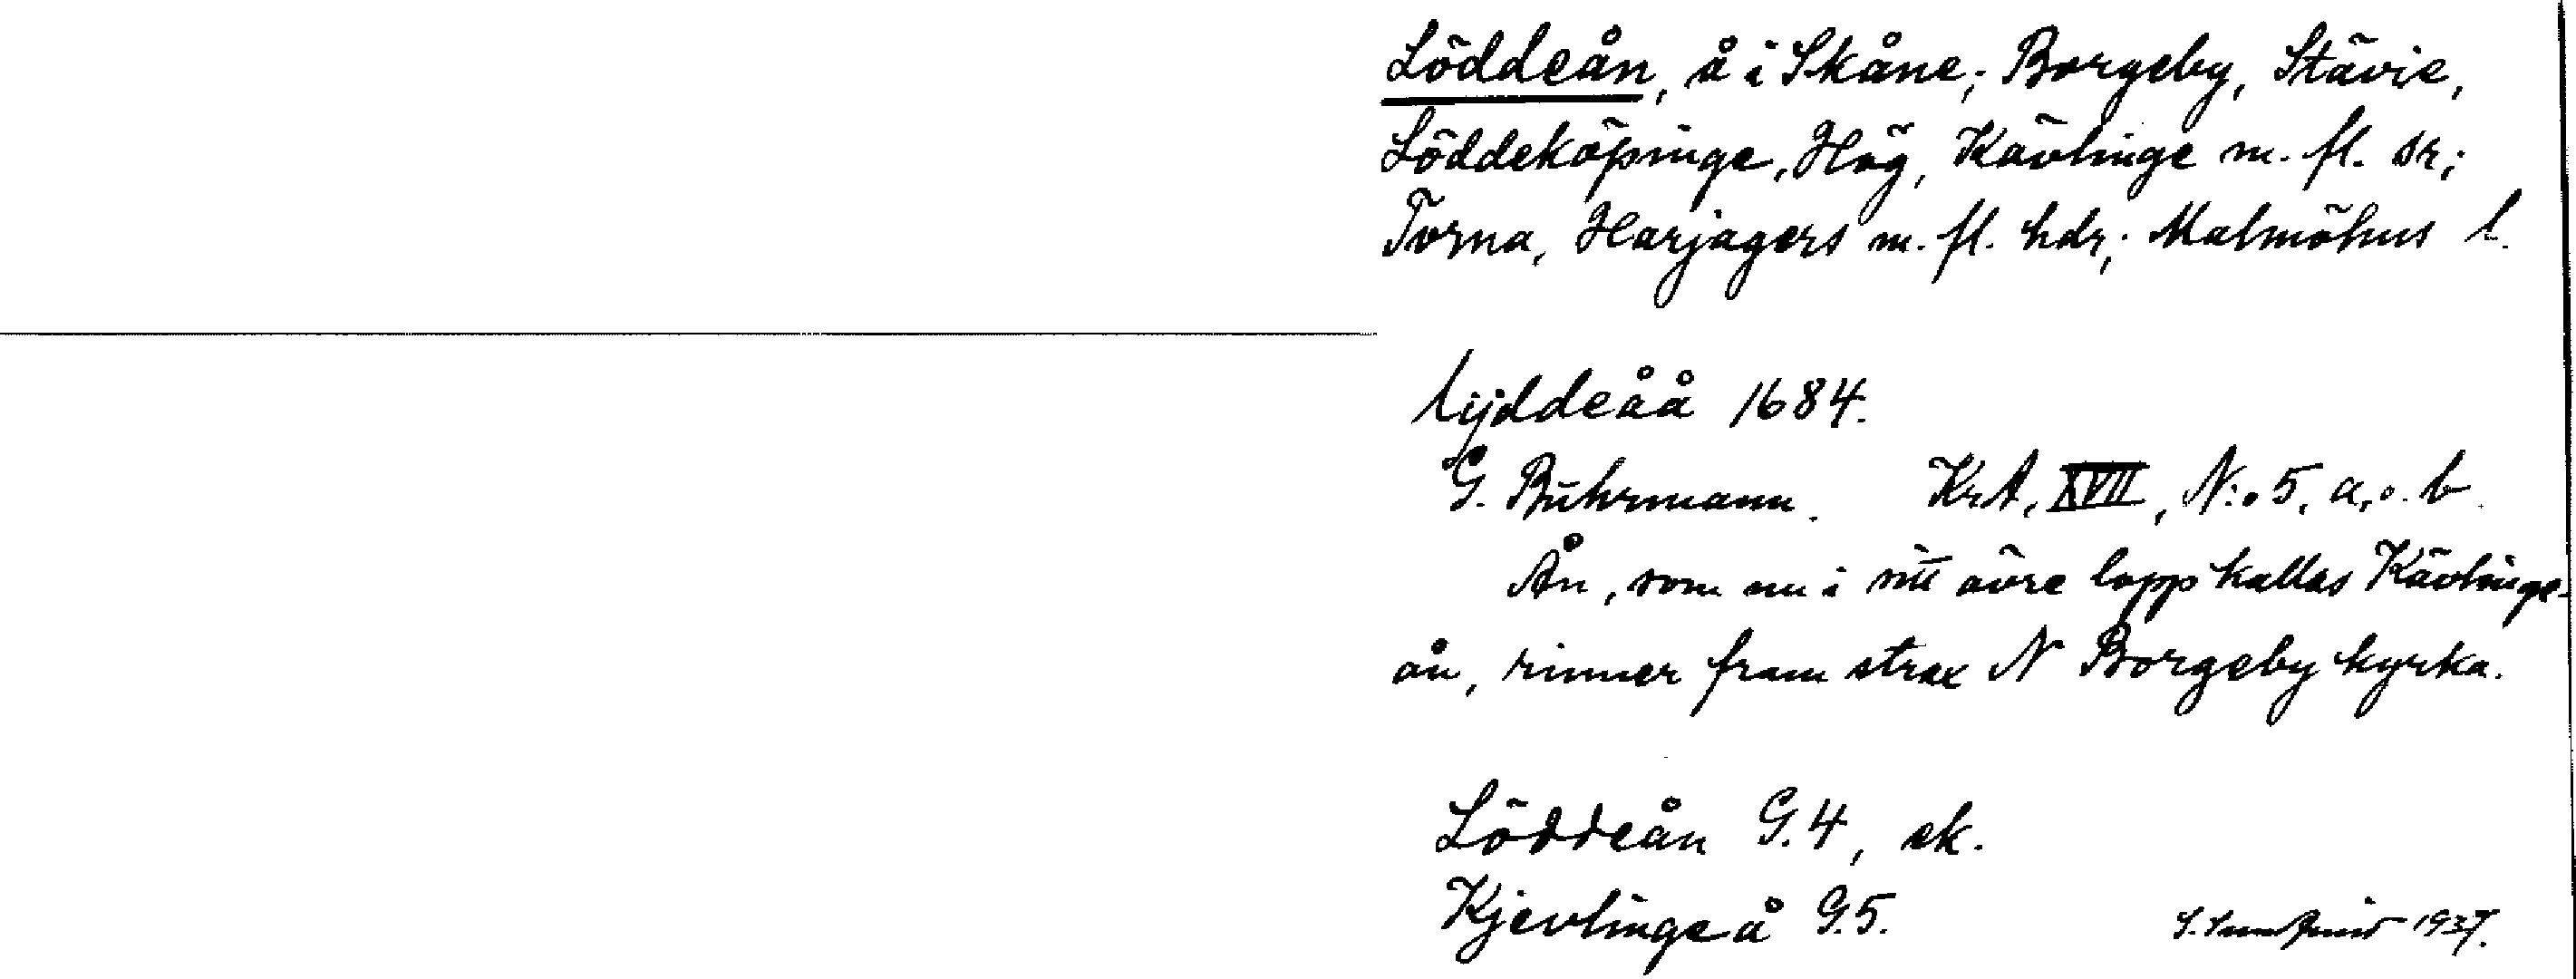 Löddeån, å i Skåne; Borgeby, Stävie,
Löddeköpinge, Hög, Kävlinge m. fl. sr;
Torna, Harjagers m. fl. hdr; Malmöhus l.
Lijddeåå 1684.
G. Buhrmann. KrA, XVII, N:o 5, a, o. b.
Ån, som nu i sitt övre lopp kallas Kävlinge-
ån, rinner fram strax N Borgeby kyrka.
Löddeån G.4, ek.
Kjevlinge å G.5.
1937.